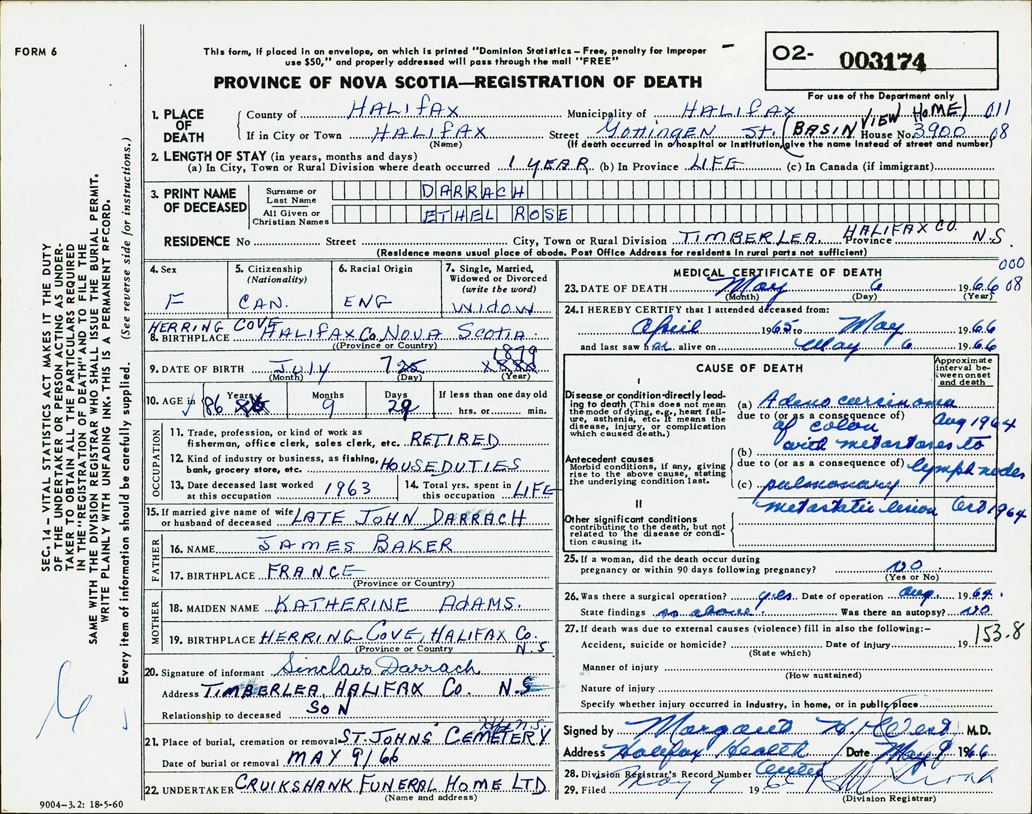 FORM 6
This form, if placed in an envelope, on which is printed "Dominion Statistics – Free, penalty for improper
use $50," and properly addressed will pass through the mail "FREE"
PROVINCE OF NOVA SCOTIA—REGISTRATION OF DEATH
O2- 003174
For use of the Department only
1. PLACE OF DEATH
County of HALIFAX Municipality of HALIFAX
If in City or Town HALIFAX (Name) Street GOTTINGEN ST. (BASIN VIEW HOME) House No. 3900
011
08
(If death occurred in a hospital or institution, give the name instead of street and number)
2. LENGTH OF STAY (in years, months and days)
(a) In City, Town or Rural Division where death occurred 1 YEAR (b) In Province LIFE (c) In Canada (if immigrant)
3. PRINT NAME OF DECEASED
Surname or Last Name DARRACH
All Given or Christian Names ETHEL ROSE
RESIDENCE No Street City, Town or Rural Division TIMBERLEA, HALIFAX CO. Province N.S.
(Residence means usual place of abode. Post Office Address for residents in rural parts not sufficient)
4. Sex F
5. Citizenship (Nationality) CAN.
6. Racial Origin ENG
7. Single, Married, Widowed or Divorced (write the word) WIDOW
8. BIRTHPLACE HERRING COVE HALIFAX CO. NOVA SCOTIA
(Province or County)
9. DATE OF BIRTH JULY (Month) 7 (Day) 1879 (Year)
10. AGE in Years 86 Months 9 Days 29 If less than one day old hrs. or min.
OCCUPATION
11. Trade, profession, or kind of work as
fisherman, office clerk, sales clerk, etc. RETIRED
12. Kind of industry or business, as fishing,
bank, grocery store, etc. HOUSEDUTIES
13. Date deceased last worked at this occupation 1963
14. Total yrs. spent in this occupation LIFE
15. If married give name of wife
or husband of deceased LATE JOHN DARRACH
FATHER
16. NAME JAMES BAKER
17. BIRTHPLACE FRANCE
(Province or Country)
MOTHER
18. MAIDEN NAME KATHERINE ADAMS.
19. BIRTHPLACE HERRING COVE, HALIFAX CO. N.S
(Province or Country)
20. Signature of informant Sinclair Darrach
Address TIMBERLEA, HALIFAX CO. N.S
Relationship to deceased SON
21. Place of burial, cremation or removal ST. JOHNS CEMETERY
Date of burial or removal MAY 9/66
22. UNDERTAKER CRUIKSHANK FUNERAL HOME LTD
(Name and address)
MEDICAL CERTIFICATE OF DEATH
000
08
23. DATE OF DEATH May (Month) 6 (Day) 1966 (Year)
24. I HEREBY CERTIFY that I attended deceased from:
April 1965 to May 1966
and last saw her alive on May 6 1966
CAUSE OF DEATH
Approximate interval between onset and death
I
Disease or condition directly leading to death (This does not mean the mode of dying, e.g., heart failure, asthenia, etc. It means the disease, injury, or complication which caused death.)
(a) Adeno carcinoma
due to (or as a consequence of) of colon Aug 1964
(b) with metastases to
Antecedent causes
Morbid conditions, if any, giving rise to the above cause, stating the underlying condition last.
due to (or as a consequence of) lymph nodes
(c) pulmonary
metastatic lesion Oct 1964
II
Other significant conditions contributing to the death, but not related to the disease or condition causing it.
25. If a woman, did the death occur during
pregnancy or within 90 days following pregnancy? no
(Yes or No)
26. Was there a surgical operation? yes Date of operation Aug. 1964
State findings as above Was there an autopsy? no
27. If death was due to external causes (violence) fill in also the following:–
153.8
Accident, suicide or homicide? Date of injury 19
(State which)
Manner of injury
(How sustained)
Nature of injury
Specify whether injury occurred in industry, in home, or in public place
Signed by Margaret H. West M.D.
Address Halifax Health Centre Date May 9 1966
28. Division Registrar's Record Number
29. Filed May 9 1966
(Division Registrar)
SEC. 14 – VITAL STATISTICS ACT MAKES IT THE DUTY
OF THE UNDERTAKER OR PERSON ACTING AS UNDER-
TAKER TO OBTAIN ALL THE PARTICULARS REQUIRED
IN THE "REGISTRATION OF DEATH" AND TO FILE THE
SAME WITH THE DIVISION REGISTRAR WHO SHALL ISSUE THE BURIAL PERMIT.
WRITE PLAINLY WITH UNFADING INK. THIS IS A PERMANENT RECORD.
Every item of information should be carefully supplied. (See reverse side for instructions.)
9004–3.2: 18-5-60